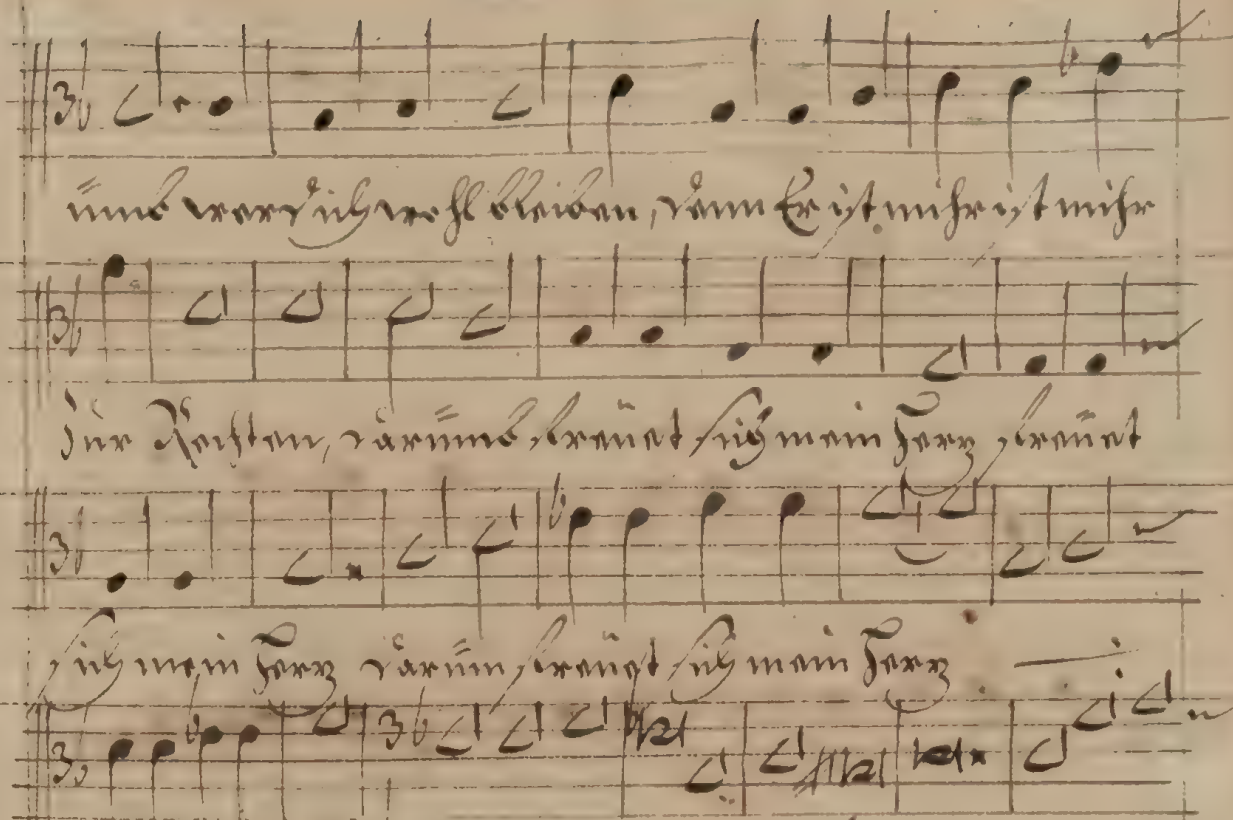 ümb werd ich wohl bleiben, denn Er ist mihr ist mihr
Zur Rechten, darümb freüet sich mein Herz freüet
sich mein Herz darüm freüet sich mein Herz